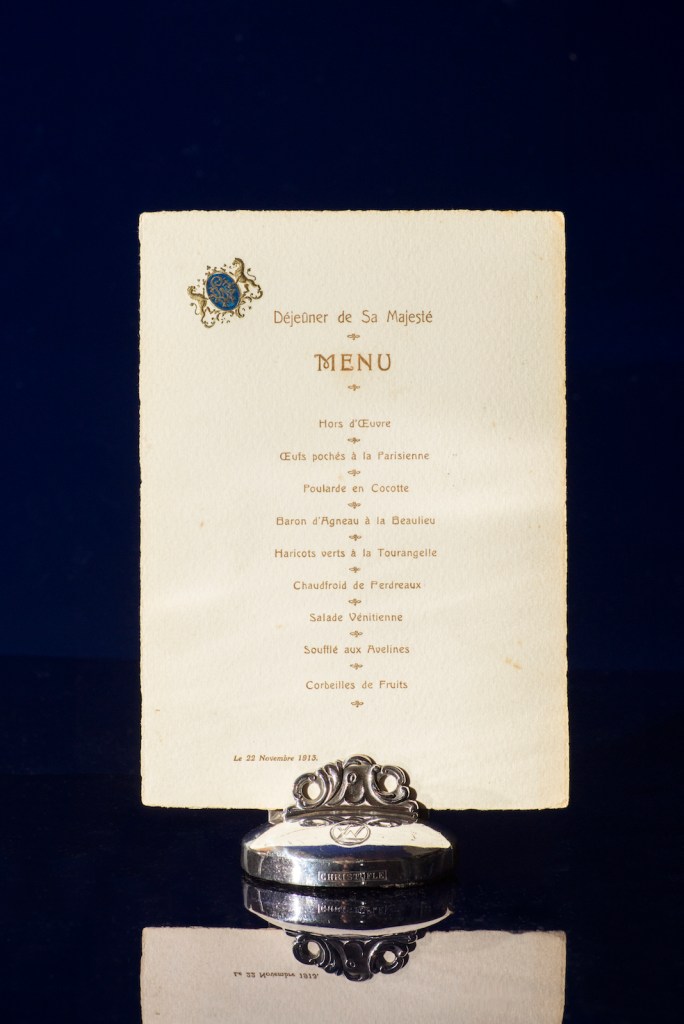 Déjeûner de Sa Majesté
MENU
Hors d'Œuvre
Œufs pochés à la Parisienne
Poularde en Cocotte
Baron d'Agneau à la Beaulieu
Haricots verts à la Tourangelle
Chaudfroid de Perdreaux
Salade Vénitienne
Soufflé aux Avelines
Corbeilles de Fruits
Le 22 Novembre 1913.
CHRISTOFLE